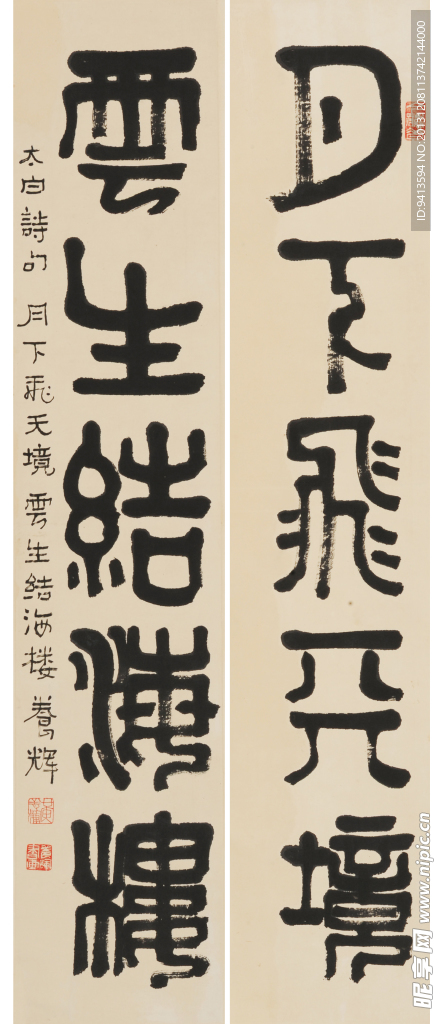 月下飛天境
雲生結海樓
太白詩句 月下飛天境 雲生结海楼 養辉
ID:9413594 NO:20131208113742144000
昵享网 www.nipic.cn